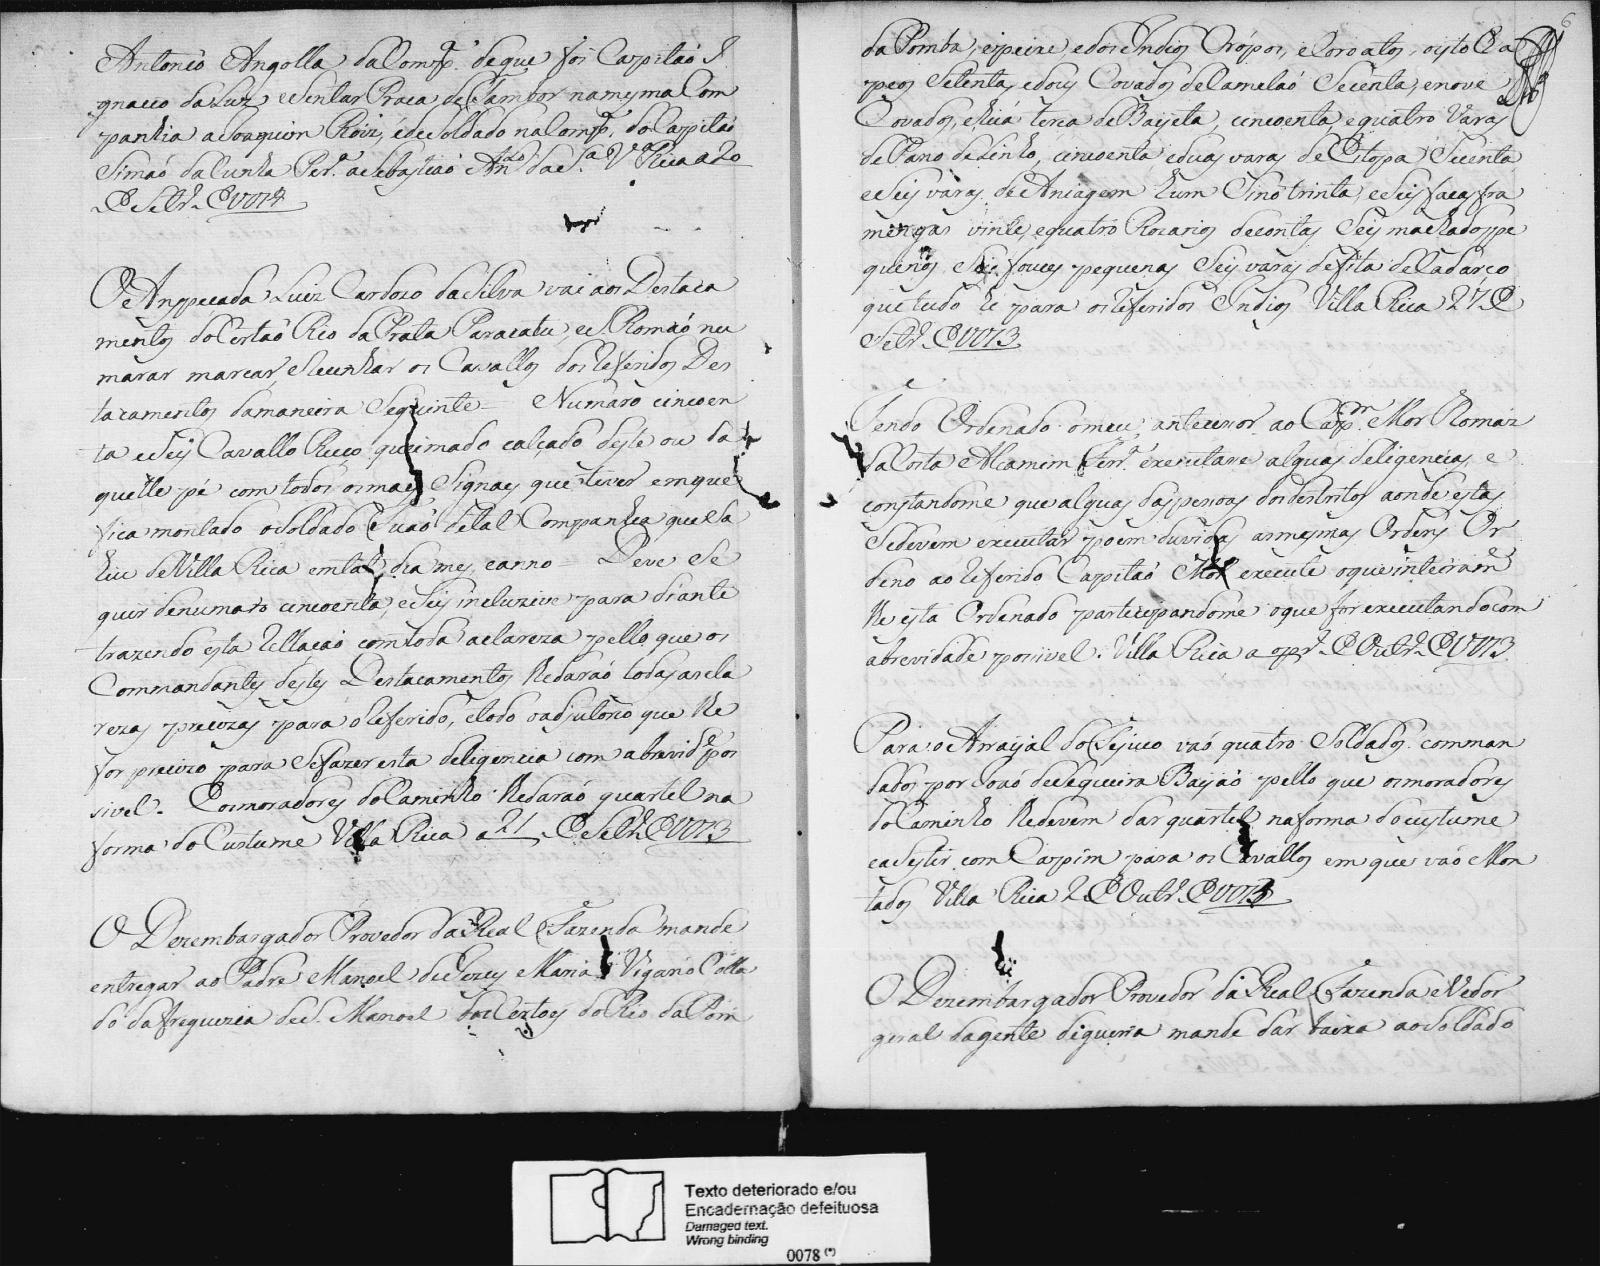 Antonio Angolla da Comp.ª de que foi Capitaó I
gnacio da Luz, e Sentar Praça de Tambor na mesma Com
panhia a Joaquim Roiz, e de Soldado na Comp.ª do Capitaó
Simaó da Cunha Per.ª a Sebastiaó An.to da S.ª V.ª Rica a 20
de Setr.º de
O Anspecada Luiz Cardozo da Silva vai aos Destaca
mentos do Certaó Rio da Prata Paracatu, e S. Romaó nu
marar marcar, e Recunhar os Cavallos dos referidos Des
tacamentos da maneira Seguinte = Numaro cincoen
ta e Seis Cavallo Ruço queimado calçado deste ou da
quelle pé com todos os mais Signaes que tiver em que
fica montado o Soldado Fuaó de tal Companhia que Sa
hiu de Villa Rica em tal dia mes, e anno = Deve Se
guir de numaro cincoenta, e Seis incluzive para diante
trazendo esta rellaçaó com toda a clareza pello que os
Commandantes destes Destacamentos lhe daraó todas as cla
rezas precizas para o referido, e todo o adjutorio que lhe
for precizo para Se fazer esta deligencia com a brevid.e pos
sivel. E os moradores do Caminho lhe daraó quartel na
forma do Custume Villa Rica a 21 de Setr.º de
O Dezembargador Provedor da Real Fazenda mande
entregar ao Padre Manoel de Jezus Maria Vigario Colla
do da freguezia de S. Manoel dos Certoes do Rio da Pom
6
da Pomba, e peixe, e dos Indios Crópos, e Coroatos, oito Cha
peos Setenta, e dous Covados de Camelaó Secenta, e nove
Covados, e huá terça de Bayeta, cincoenta, e quatro varas
de Pano de Linho, cincoenta e duas varas de Estopa Secenta
e Seis varas de Aniagem hum Sino trinta, e Seis facas fra
mengas vinte, e quatro Rozarios de contas Seis machados pe
quenos Seis fouces pequenas Seis varas de fita de Cadarço
que tudo he para os referidos Indios Villa Rica 27 de
Setr.º de
Tendo Ordenado o meu antecessor ao Cap.m Mor Romaz
da Costa Alcamim Ferr.ª executase alguas deligencias, e
constandome que alguas das pessoas dos destritos aonde estas
Se devem executar poem duvidas as mesmas Ordens Or
deno ao referido Capitaó Mor execute o que inteiram.e
lhe esta Ordenado participandome o que for executando com
a brevidade possivel. Villa Rica a pr.º de Outr.º de
Para o Arrayal do Tejuco vaó quatro Soldados comman
dados por Joaó de Sequeira Bayaó pello que os moradores
do Caminho lhe devem dar quartel na forma do custume
e asestir com Capim para os Cavallos em que vaó Mon
tados Villa Rica 2 de Outr.º de
O Dezembargador Provedor da Real Fazenda e Vedor
geral da gente de guerra mande dar baixa ao Soldado
Texto deteriorado e/ou
Encadernação defeituosa
Damaged text.
Wrong binding
0078 (*)